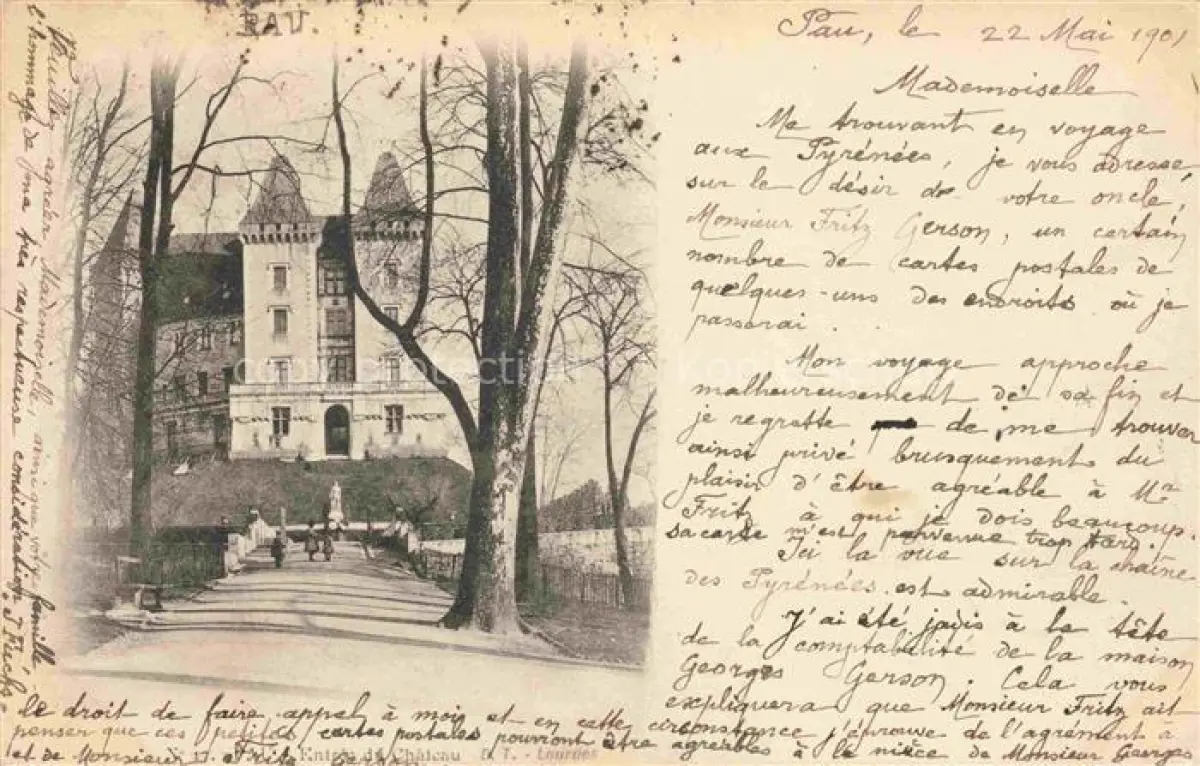 PAU.
Pau, le 22 Mai 1901
Mademoiselle
Me trouvant en voyage
aux Pyrénées, je vous adresse,
sur le désir de votre oncle,
Monsieur Fritz Gerson, un certain
nombre de cartes postales de
quelques-uns des endroits où je
passerai.
Mon voyage approche
malheureusement de sa fin et
je regrette de me trouver
ainsi privé brusquement du
plaisir d'être agréable à Mr
Fritz à qui je dois beaucoup.
sa carte m'est parvenue trop tard.
Ici la vue sur la chaîne
des Pyrénées est admirable.
J'ai été jadis à la tête
de la comptabilité de la maison
Georges Gerson. Cela vous
expliquera que Monsieur Fritz ait
le droit de faire appel à moi et en cette circonstance j'éprouve de l'agrément à
penser que ces petites cartes postales pourront être agréables à la nièce de Monsieur Georges
et de Monsieur Fritz Gerson
Veuillez agréer Mademoiselle, ainsi que votre famille
l'hommage de ma très respectueuse considération.
Entrée du Château
D. T. - Lourdes